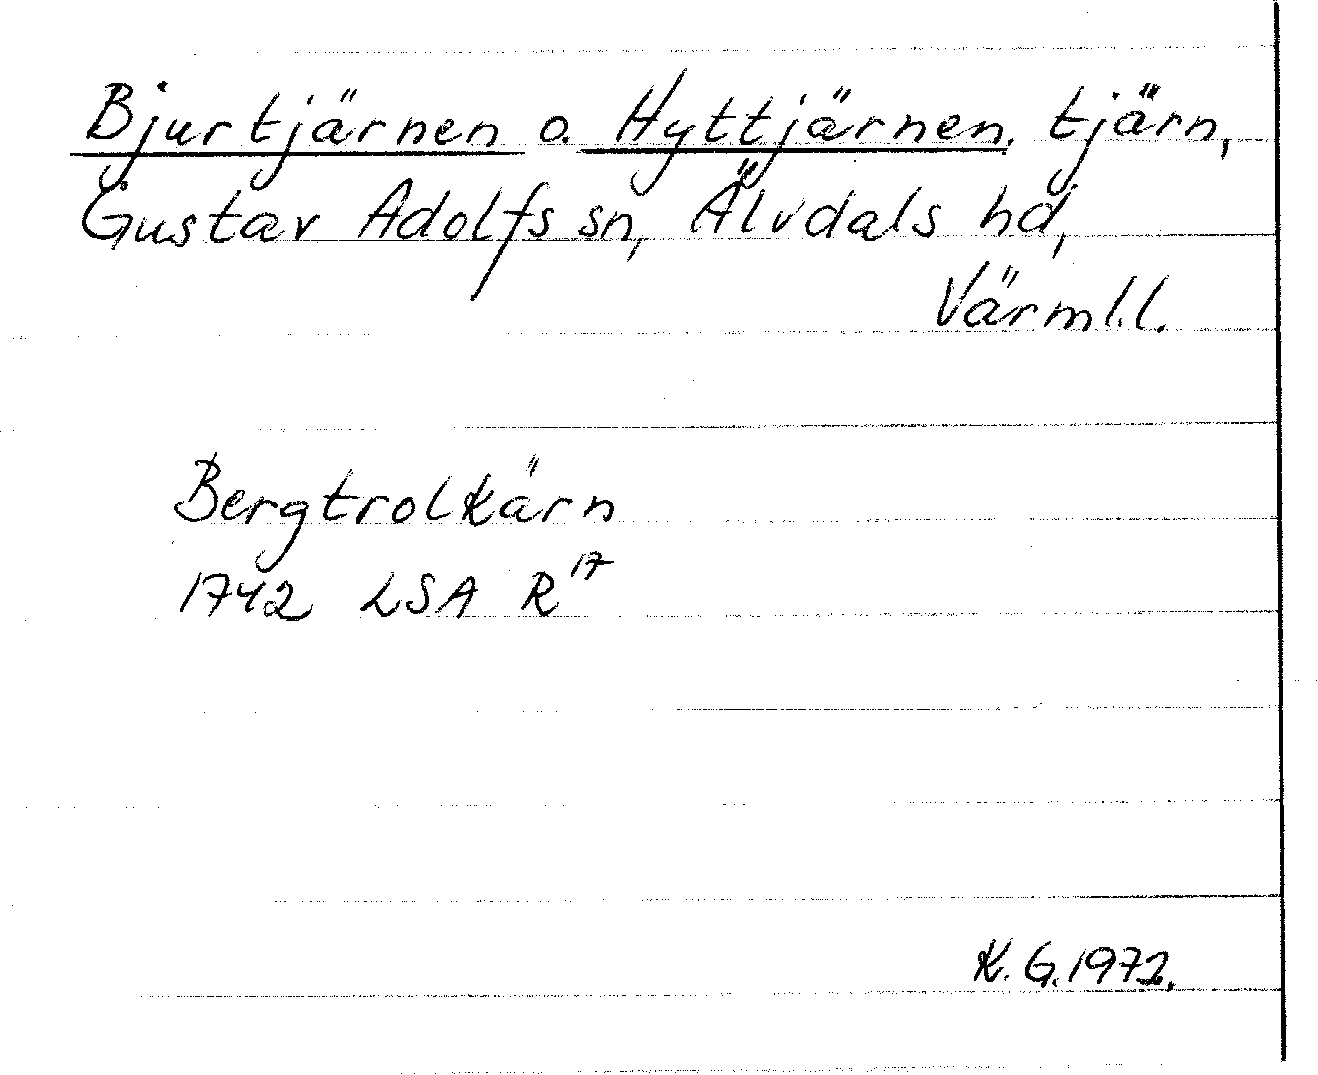 Bjurtjärnen o. Hyttjärnen, tjärn,
Gustav Adolfs sn, Älvdals hd,
Värml.l.
Bergtrolkärn
1742 LSA R17
K.G.1972.